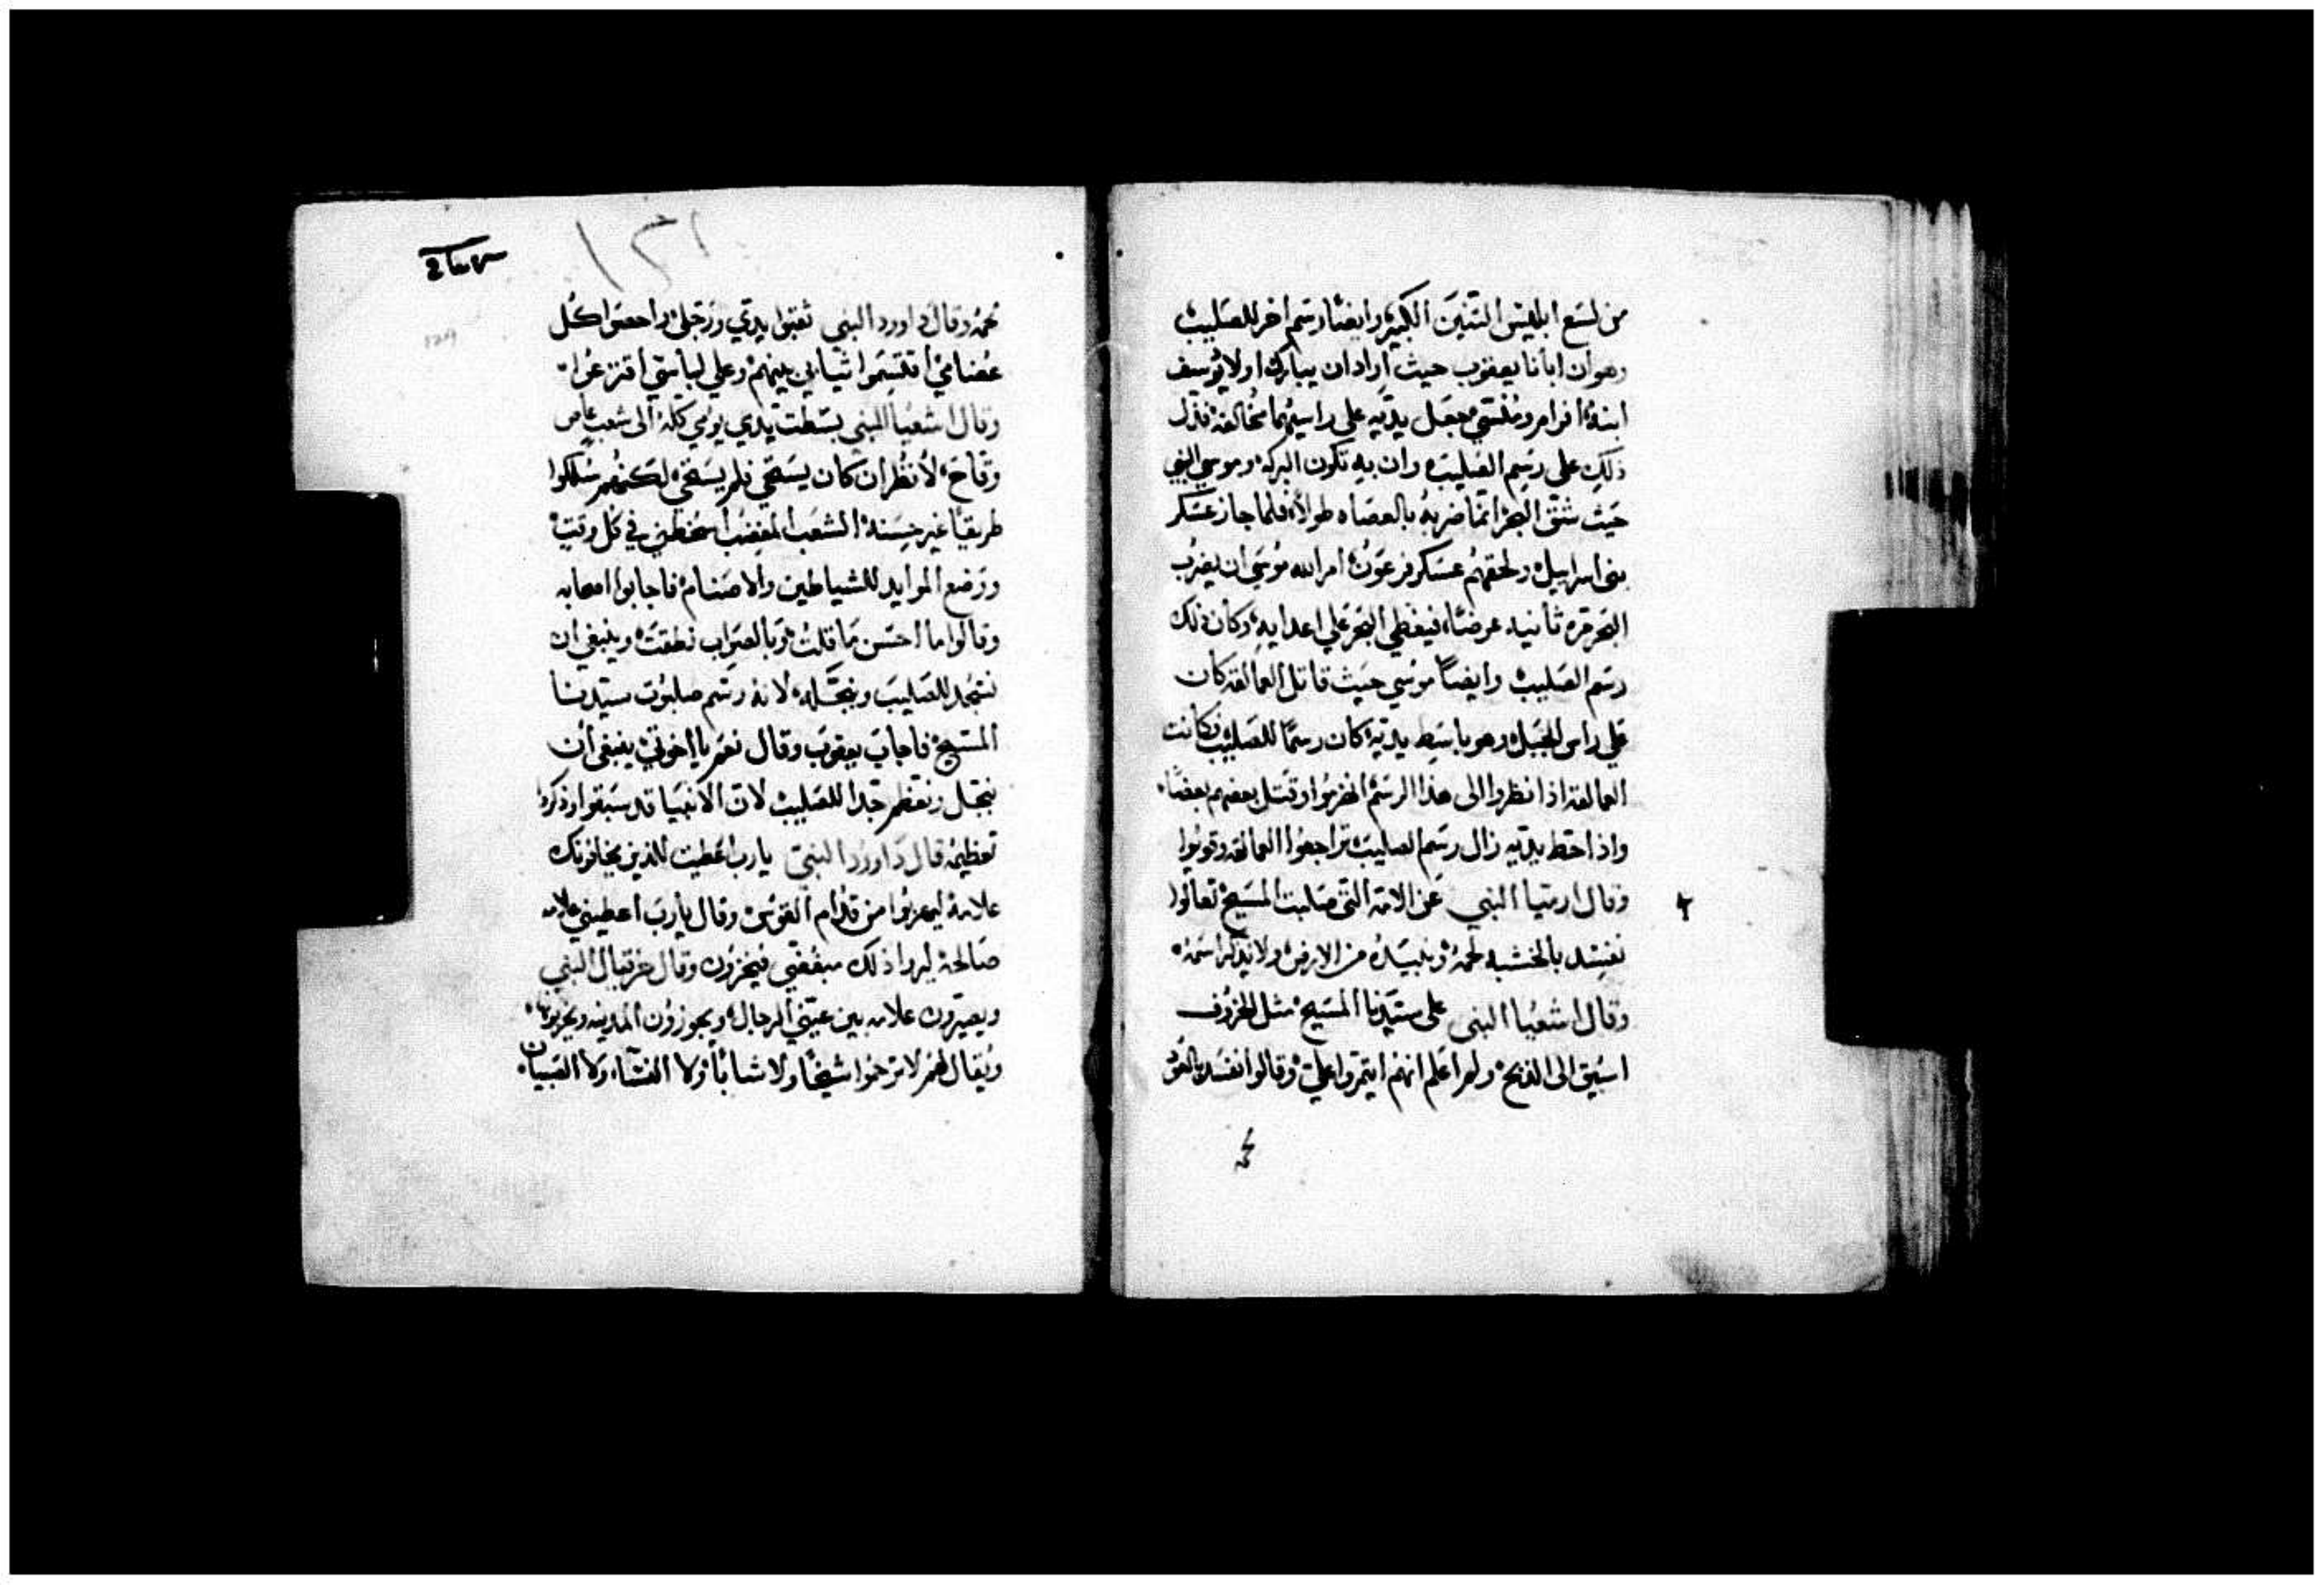 من لسع ابليس التنين الكبير وايضًا رسم اخر للصليب
وهو ان ابانا يعقوب حيث اراد ان يبارك اولا يوسف
ابنه افرام ومنسي جعل يديه على راسيهما مخالفه فدل
ذلك على رسم الصليب وان به تكون البركه وموسي النبي
حيث شق البحر انما ضربه بالعصاه طولاً فلما جاز عسكر
بني اسراييل ولحقهم عسكر فرعون امر الله موسي ان يضرب
البحر مره ثانيه عرضًا فيغطي البحر علي اعدايه وكان ذلك
رسم الصليب وايضًا موسي حيث قاتل العمالقه كان
علي راس الجبل وهو باسط يديه كان رسمًا للصليب فكانت
العمالقه اذا نظروا الى هذا الرسم انهزموا وقتل بعضهم بعضًا
واذا حط يديه زال رسم الصليب تراجعوا العمالقه وقويوا
وقال ارميا النبي عن الامه التي صلبت المسيح تعالوا
نفسد بالخشبه لحمه ونبيده من الارض ولا نذكر اسمه
وقال اشعيا النبي على سيدنا المسيح مثل الخروف
اسيق الى الذبح ولم اعلم انهم ايتمروا علي وقالوا نفسد بالعود
١٣١
لحمه وقال داوود النبي ثقبوا يدي ورجلي واحصوا كل
عضامي اقتسموا ثيابي بينهم وعلي لباسي اقترعوا
وقال اشعيا النبي بسطت يدي يومي كله الى شعب عاص
وقاح لانظر ان كان يستحي فلم يستحي لكنهم سلكوا
طريقًا غير حسنه الشعب المغضب اسخطني في كل وقت
ووضع الموايد للشياطين والاصنام فاجابوا اصحابه
وقالوا ما احسن ما قلت وبالصواب نطقت وينبغي ان
نسجد للصليب ونبجله لانه رسم صلبوت سيدنا
المسيح فاجاب يعقوب وقال نعم يا اخوتي ينبغي ان
نبجل ونعظم جدا للصليب لان الانبيا قد سبقوا وذكروا
تعظيمه قال داوود النبي يا رب اعطيت للذين يخافونك
علامة ليهربوا من قدام القوس وقال يا رب اعطيني علامه
صالحة ليروا ذلك مبغضي فيخزون وقال حزقيال النبي
ويصيرون علامه بين عيني الرجال ويجوزون المدينه ويخربونها
ويقال لهم لا ترحموا شيخًا ولا شابًا ولا النسا ولا الصبيان